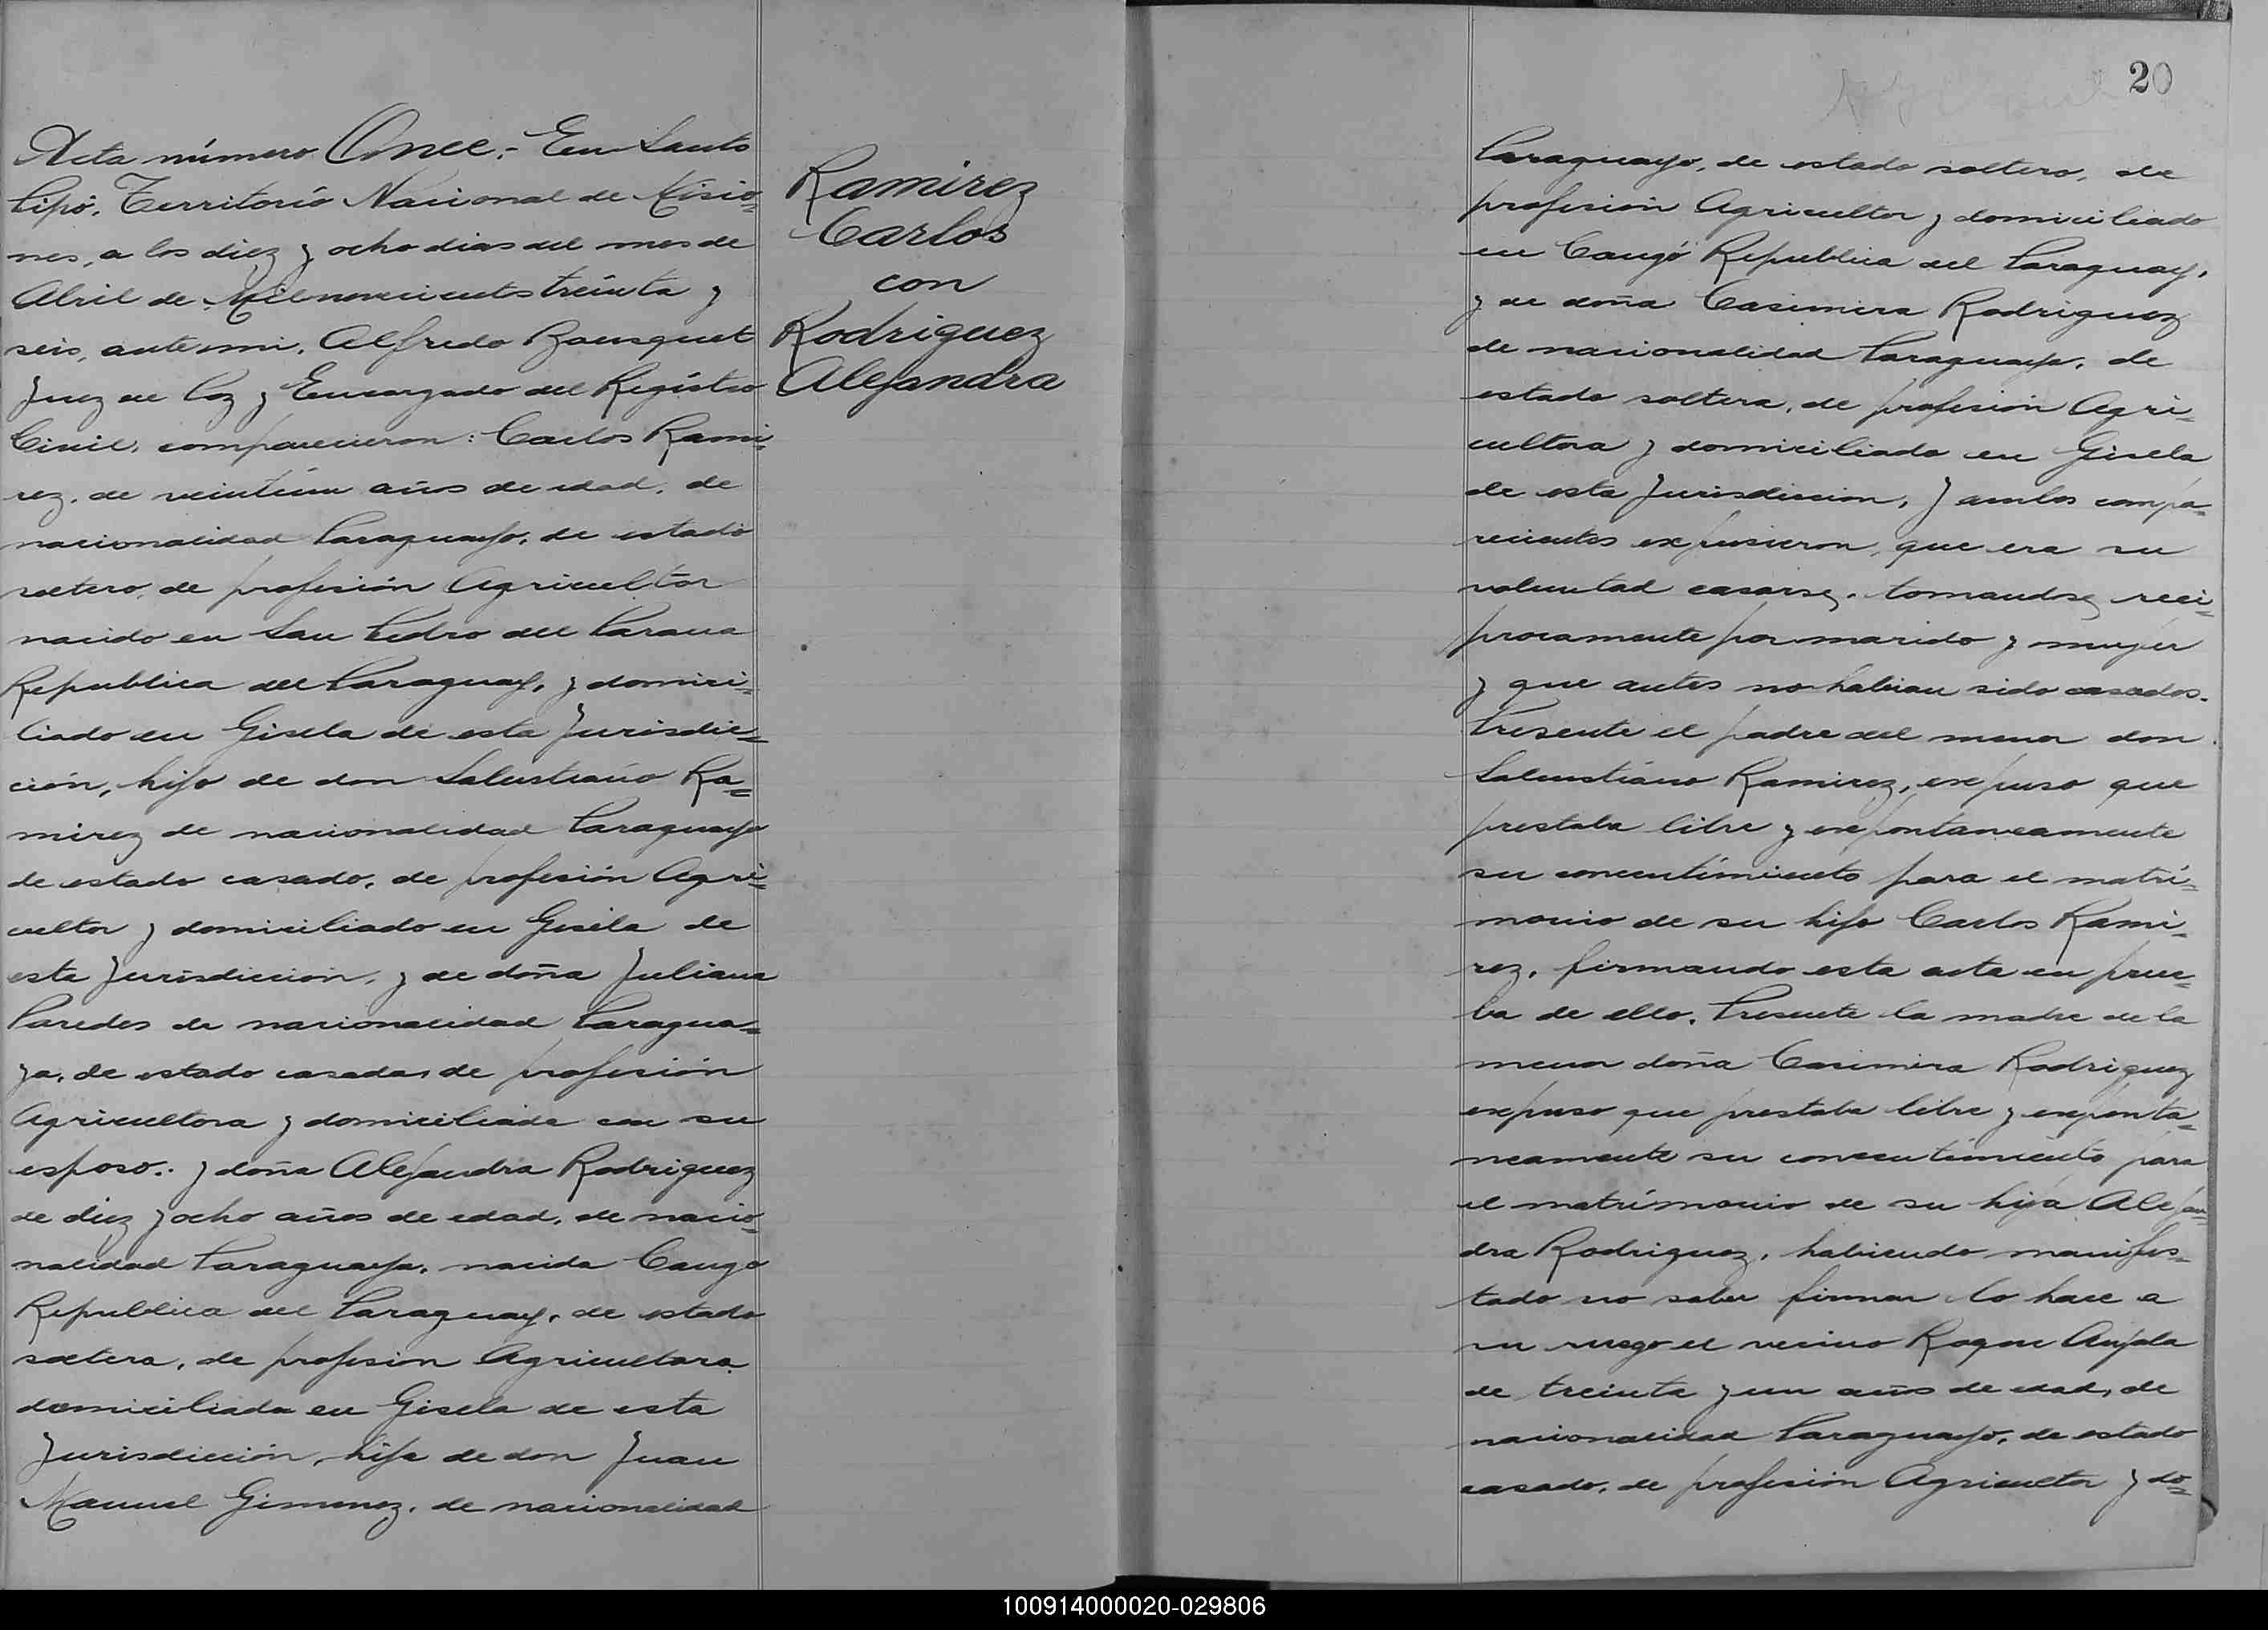 Acta número Once.- En Santo
Pipó, Territorio Nacional de Misio=
nes, a los diez y ocho dias del mes de
Abril de Mil novecientos treinta y
seis, ante mi, Alfredo Bousquet
Juez de Paz y Encargado del Registro
Civil, comparecieron: Carlos Rami=
rez, de veintiun años de edad, de
nacionalidad Paraguayo, de estado
soltero, de profesión Agricultor
nacido en San Pedro del Parana
Republica del Paraguay, y domici=
liado en Gisela de esta Jurisdic=
ción, hijo de don Salustiano Ra=
mirez de nacionalidad Paraguayo
de estado casado, de profesión Agri=
cultor y domiciliado en Gisela de
esta Jurisdiccion, y de doña Juliana
Paredes de nacionalidad Paragua=
ya, de estado casada, de profesión
Agricultora y domiciliada con su
esposo.. y doña Alejandra Rodriguez
de diez y ocho años de edad, de nacio=
nalidad Paraguaya, nacida Cangó
Republica del Paraguay, de estado
soltera, de profesion Agricultora
domiciliada en Gisela de esta
Jurisdicción, hija de don Juan
Manuel Gimenez, de nacionalidad
Ramirez
Carlos
con
Rodriguez
Alejandra
20
Paraguayo, de estado soltero, de
profesión Agricultor y domiciliado
en Cangó Republica del Paraguay,
y de doña Casimira Rodriguez
de nacionalidad Paraguaya, de
estado soltera, de profesión Agri=
cultora y domiciliada en Gisela
de esta Jurisdiccion, y ambos compa=
recientes expusieron, que era su
voluntad casarse, tomandose reci=
procamente por marido y mujer
y que antes no habian sido casados.
Presente el padre del menor don
Salustiano Ramirez, expuso que
prestaba libre y expontaneamente
su concentimiento para el matri=
monio de su hijo Carlos Rami=
rez, firmando esta acta en prue=
ba de ello. Presente la madre de la
menor doña Casimira Rodriguez
expuso que prestaba libre y exponta=
neamente su concentimiento para
el matrimonio de su hija Alejan=
dra Rodriguez, habiendo manifes=
tado no saber firmar lo hace a
su ruego el vecino Roque Ayala
de treinta y un años de edad, de
nacionalidad Paraguayo, de estado
casado, de profesión Agricultor y do=
100914000020-029806